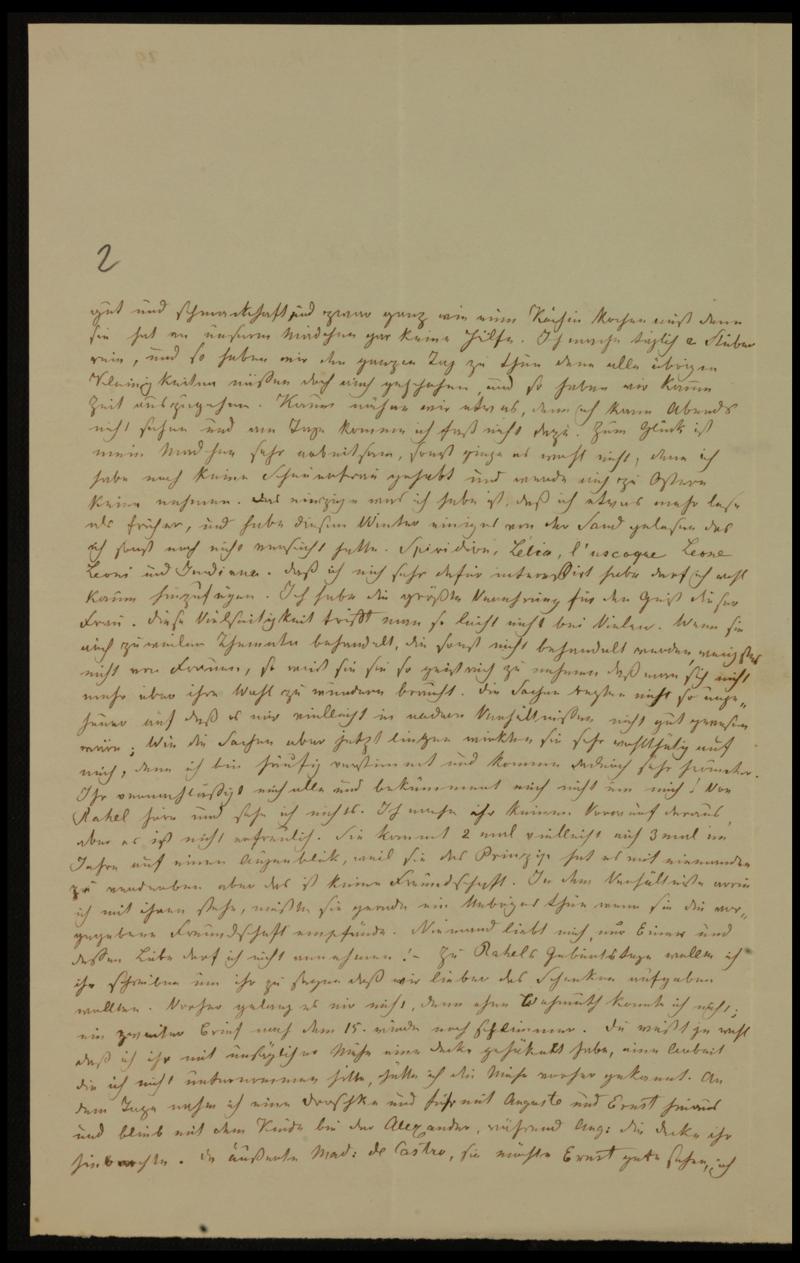 2
gut und schmackhaft und zwar ganz wie eine Köchin kochen muß denn
sie hat an unserm Mädchen gar keine Hilfe. Ich mache täglich 2 Stuben
rein, und so haben wir den ganzen Tag zu thun denn alle übrigen
Kleinigkeiten müßen doch auch geschehen und so haben wir kaum
Zeit auszugehen. Kaum nähen wir etwas, denn ich kann Abends
nicht sehen und am Tage komme ich fast nicht dazu. Zum Glück ist
mein Mädchen sehr arbeitsam, sonst ginge es wohl nicht, denn ich
habe noch keine Scheuerfrau gehabt und werde auch zu Ostern
keine nehmen. Das einzige was ich habe ist, daß ich etwas mehr lese
als früher, und habe diesen Winter einiges von der Sand gelesen das
ich sonst noch nicht versucht hatte. Spiridion, Lélia, l'uscoque Leone
Leoni und Indiana. Daß ich mich sehr dafür interessirt habe darf ich wohl
kaum hinzufügen. Ich habe die größte Verehrung für den Geist dieser
Frau. Diese Vielseitigkeit trifft man so leicht nicht bei Vielen. Wenn sie
auch zuweilen Themata behandelt, die sonst nicht behandelt werden, wenigstens
nicht von Frauen, so weiß sie sie so geistreich zu nehmen daß man sich nicht
mehr über ihre Wahl zu wundern braucht. Die Sachen regten mich so unge-
heuer auf daß es mir vielleicht in andern Verhältnißen nicht gut gewesen
wäre; Wie die Sachen aber jetzt liegen wirkten sie sehr wohlthätig auf
mich, denn ich bin häufig verstimmt und komme dadurch sehr herunter.
Ihr vernachläßigt mich alle und bekümmert euch nicht um mich! Von
Rahel höre und sehe ich nichts. Ich mache ihr keinen Vorwurf daraus,
aber es ist nicht erfreulich. Sie kommt 2 mal vielleicht auch 3 mal im
Jahre auf einen Augenblik, weil sie das Prinzip hat es mit niemanden
zu verderben aber das ist keine Freundschaft. In dem Verhältniße worin
ich mit ihnen stehe, müßte sie gerade ein Uebriges thun wenn sie die vor-
gegebene Freundschaft empfände. Niemand liebt mich, nur Einer und
deßen Liebe darf ich nicht annehmen! – Zu Rahels Geburtstage wollte ich
ihr schreiben um ihr zu sagen daß wir lieber das Schenken aufgeben
wollten. Vorher gelang es mir nicht, denn ohne Wehmuth konnte ich nicht;
ein zweiter Brief nach dem 15. wurde noch schlimmer. Du weißt ja wohl
daß ich ihr mit unsäglicher Mühe eine Decke gehäkelt habe, eine Arbeit
die ich nicht unternommen hätte, hätte ich die Mühe vorher gekannt. An
dem Tage nahm ich eine Droschke und fuhr mit Auguste und Ernst hinaus
und blieb mit dem Kinde bei der Alexander, während Aug: die Decke ihr
hinbrachte. Da äußerte Mad: de Castro, sie möchte Ernst gern sehen, ich